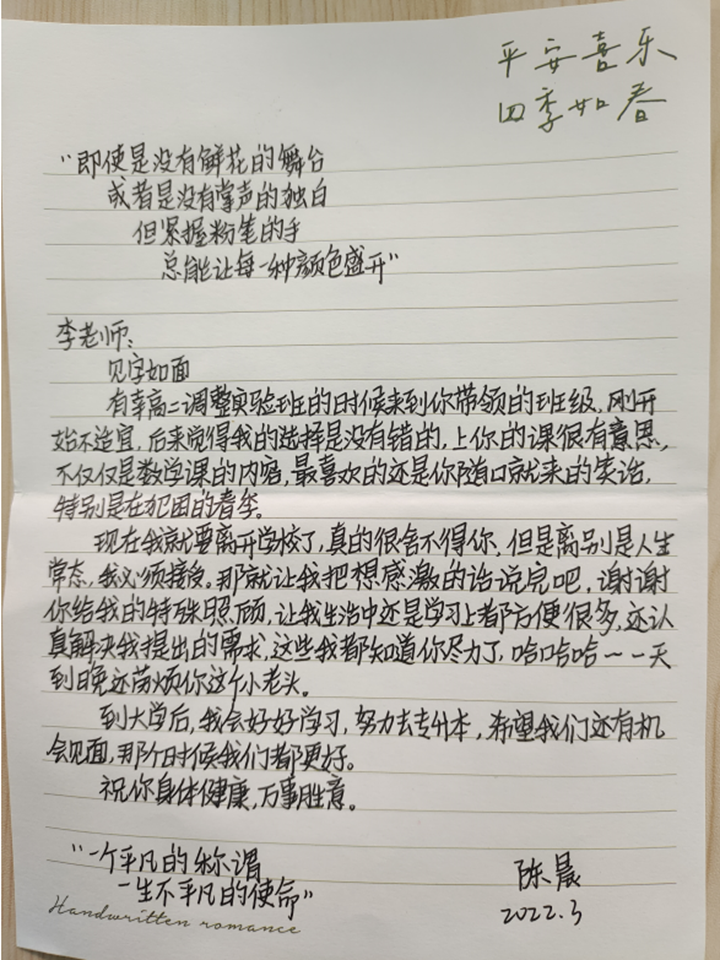 平安喜乐
四季如春
“即使是没有鲜花的舞台
或者是没有掌声的独白
但紧握粉笔的手
总能让每一种颜色盛开”
李老师:
见字如面
有幸高二调整实验班的时候来到你带领的班级,刚开
始不适宜,后来觉得我的选择是没有错的,上你的课很有意思,
不仅仅是数学课的内容,最喜欢的还是你随口就来的笑话,
特别是在犯困的春季。
现在我就要离开学校了,真的很舍不得你,但是离别是人生
常态,我必须接受。那就让我把想感激的话说完吧,谢谢
你给我的特殊照顾,让我生活中还是学习上都方便很多,还认
真解决我提出的需求,这些我都知道你尽力了,哈哈哈~一天
到晚还劳烦你这个小老头。
到大学后,我会好好学习,努力去专升本,希望我们还有机
会见面,那个时候我们都更好。
祝你身体健康,万事胜意。
“一个平凡的称谓
一生不平凡的使命”
陈晨
2022.3
Handwritten romance